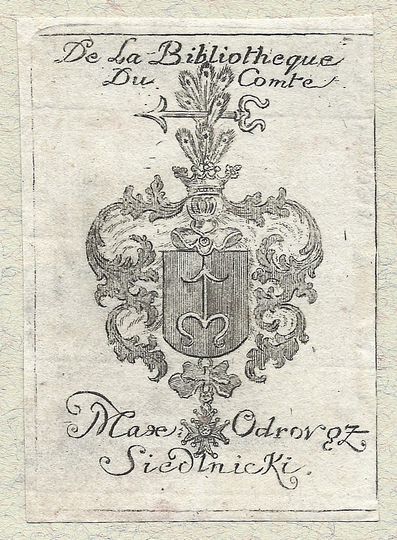 De La Bibliotheque
Du Comte
Max: Odrovąż
Siedlnicki.